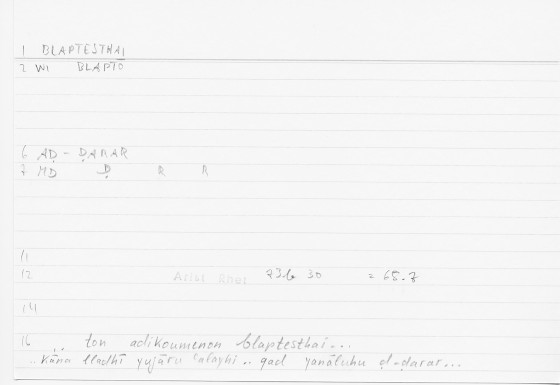 1 BLAPTESTHAI
2 WI BLAPTŌ
6 AḌ-ḌARAR
7 MD Ḍ R R
11
12 Arist Rhet 73b 30 = 65.7
14
16 .. ton adikoumenon blaptesthai...
.. kāna lladhī yujāru ʿalayhi .. qad yanāluhu ḍ-ḍarar...